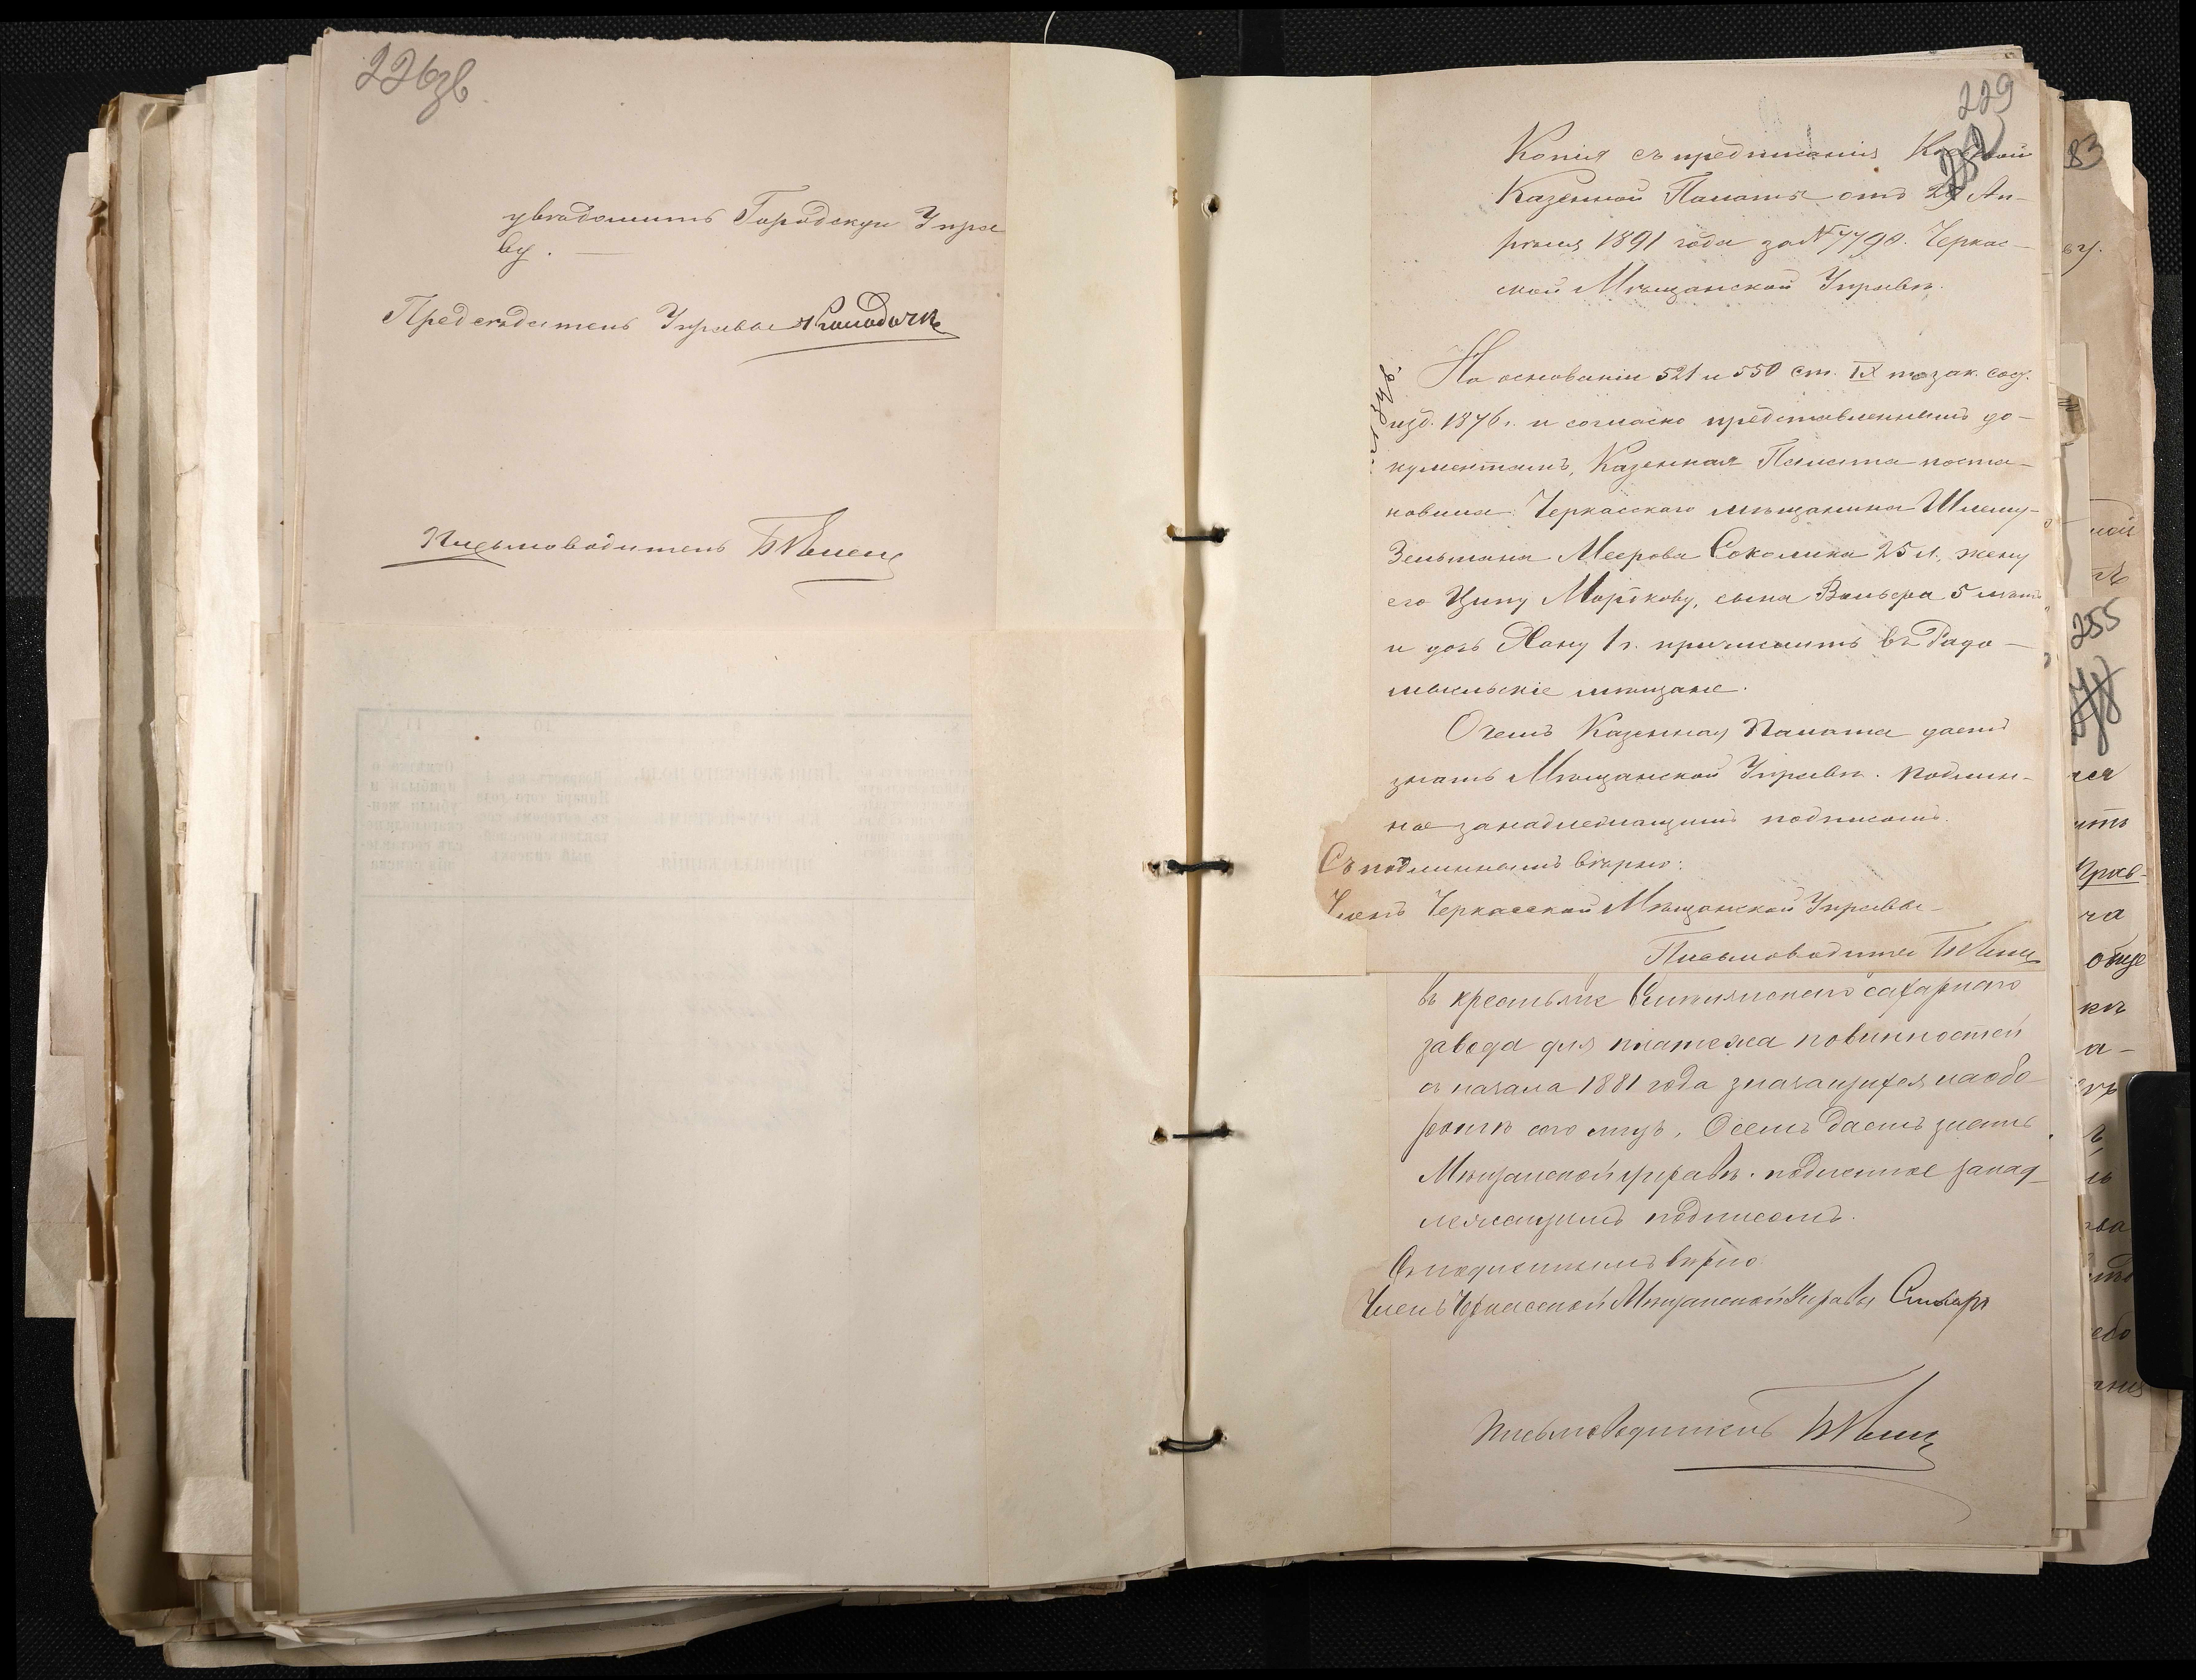 226 зв
увѣдомить Городскую Упра
ву. —
Предсѣдатель Управы
Письмоводитель
229
Копія съ предписанія Кіевской
Казенной Палаты отъ 29 Ап-
рѣля 1891 года за № 7790. Черкас-
ской Мѣщанской Управѣ.
На основаніи 521 и 550 ст. IX т. зак. сос.
изд. 1876 г. и согласно представленнымъ до-
кументамъ, Казенная Палата поста-
новила: Черкасскаго мѣщанина Шлему-
Зельмана Меерова Соколика 25 л. жену
его Ципу Мордкову, сына Вольфа 5 лѣтъ
и дочь Хану 1 г. причислить въ Радо-
мысльскіе мѣщане.
О чемъ Казенная Палата даетъ
знать Мѣщанской Управѣ. Подлин-
ное за надлежащимъ подписомъ.
Съ подлиннымъ вѣрно:
Членъ Черкасской Мѣщанской Управы
Письмоводитель
въ крестьяне сахарнаго
завода для платежа повинностей
съ начала 1881 года значащихся на обо-
ротѣ сего лицъ. О семъ даетъ знать
Мѣщанской управѣ. подлинное за над-
лежащимъ подписомъ.
Съ подлиннымъ вѣрно
Членъ Черкасской Мѣщанской Управы
Письмоводитель
83
ву.
255
ить
ча
обще
кѣ
а-